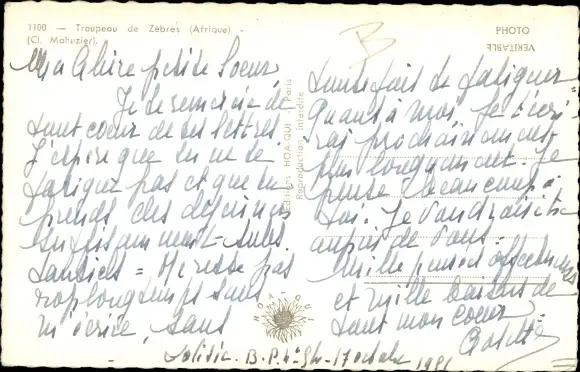 1100 — Troupeau de Zèbres (Afrique) -
(Cl. Mahuzier).
PHOTO
VERITABLE
Editions HOA-QUI - Paris
Reproduction interdite
HOA-QUI
B
Ma Chère petite Soeur
Je te remercie de
tout coeur de tes lettres
J'espère que tu ne te
fatigues pas et que tu
prends des déjeuners
suffisamment subs
tantiels = Ne reste pas
trop longtemps sans
m'écrire, sans
toutefois te fatiguer
Quant à moi, je t'écri
rai prochainement
plus longuement. Je
pense beaucoup à
toi. Je voudrais être
auprès de vous.
Mille pensées affectueuses
et mille baisers de
tout mon coeur
B.P. 17 octobre